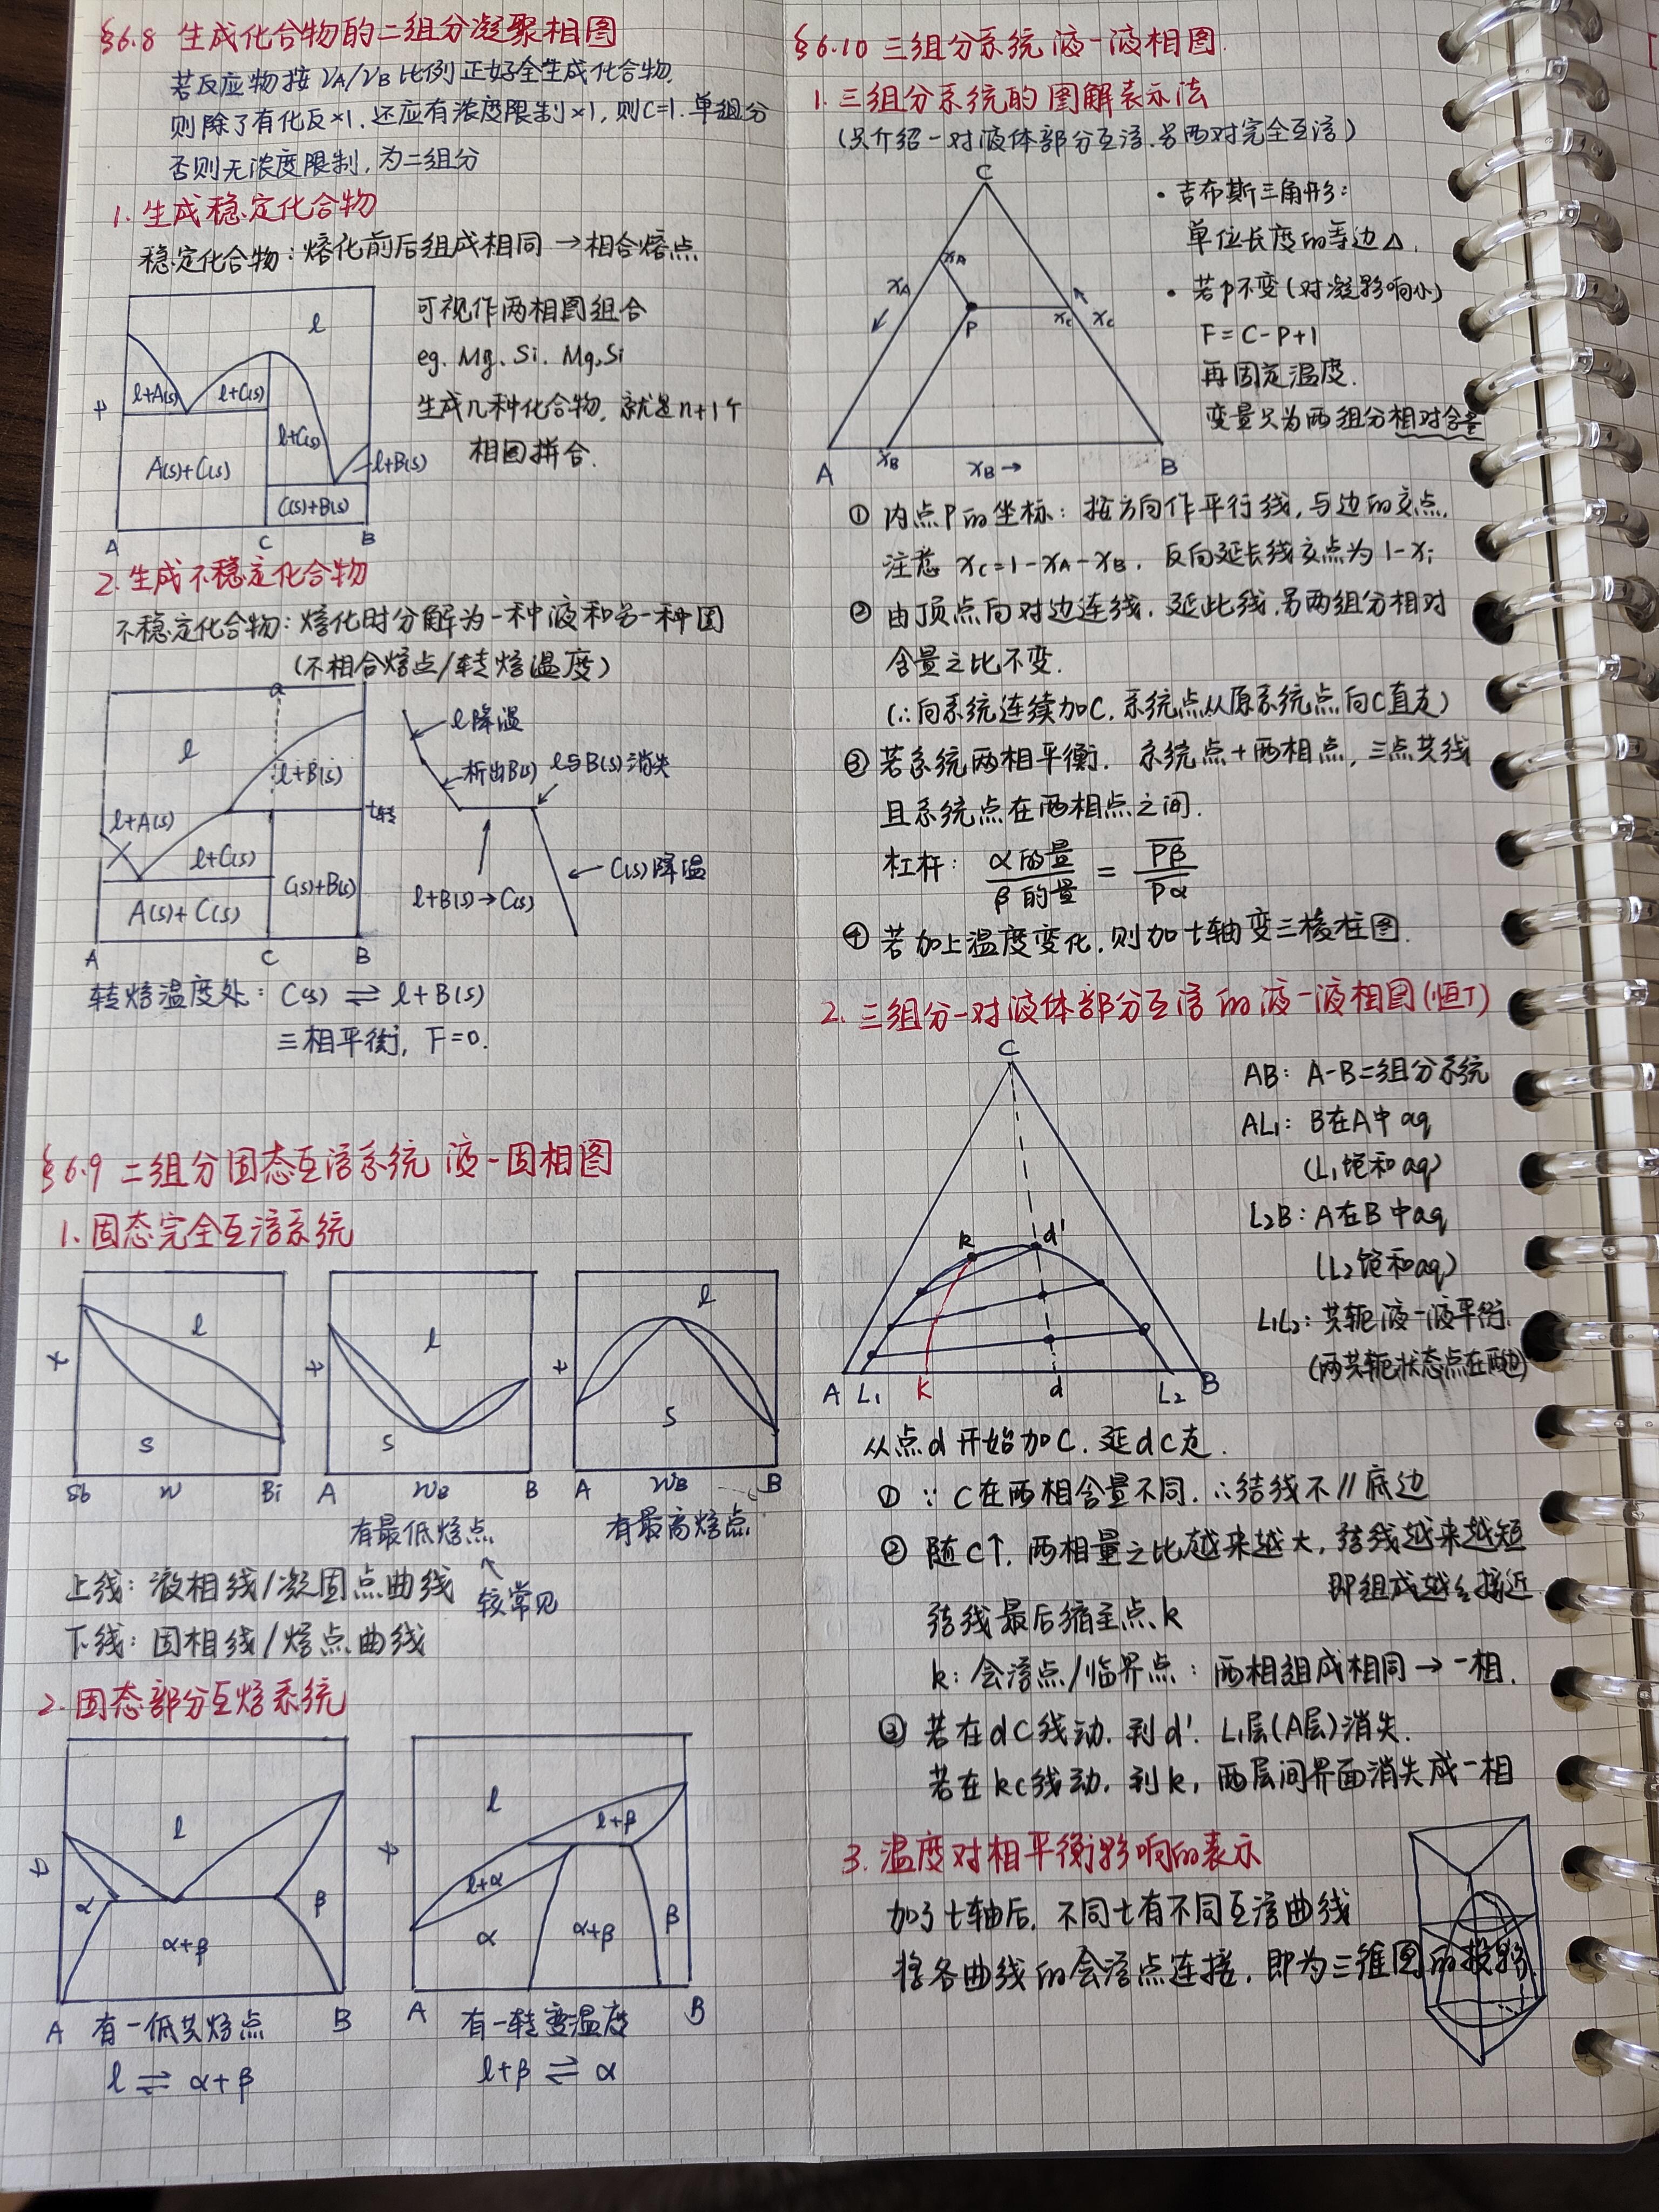 §6.8 生成化合物的二组分凝聚相图
若反应物按 νA/νB 比例正好全生成化合物,
则除了有化反×1, 还应有浓度限制×1, 则C=1. 单组分
否则无浓度限制, 为二组分
1. 生成稳定化合物
稳定化合物: 熔化前后组成相同 → 相合熔点
l
l+A(s)
l+C(s)
l+C(s)
l+B(s)
A(s)+C(s)
C(s)+B(s)
t
A C B
可视作两相图组合
eg. Mg、Si、Mg₂Si
生成n种化合物, 就是n+1个
相图拼合.
2. 生成不稳定化合物
不稳定化合物: 熔化时分解为一种液和另一种固
(不相合熔点/转熔温度)
a
l
l+B(s)
t转
l+A(s)
l+C(s)
C(s)+B(s)
A(s)+C(s)
A C B
l降温
析出B(s)
l与B(s)消失
l+B(s)→C(s)
C(s)降温
转熔温度处: C(s) ⇌ l+B(s)
三相平衡, F=0.
§6.9 二组分固态互溶系统 液-固相图
1. 固态完全互溶系统
t
l
s
Sb w Bi
t
l
s
A wB B
有最低熔点
较常见
t
l
s
A wB B
有最高熔点
上线: 液相线/凝固点曲线
下线: 固相线/熔点曲线
2. 固态部分互熔系统
t
l
α
β
α+β
A B
有一低共熔点
l ⇌ α+β
t
l
l+β
l+α
α
α+β
β
A B
有一转变温度
l+β ⇌ α
§6.10 三组分系统 液-液相图
1. 三组分系统的图解表示法
(只介绍一对液体部分互溶, 另两对完全互溶)
C
xA
xA
P
xC
xC
A xB xB → B
· 吉布斯三角形:
单位长度的等边△.
· 若p不变(对凝影响小)
F=C-P+1
再固定温度.
变量只为两组分相对含量
① 内点P的坐标: 按方向作平行线, 与边的交点.
注意 xC=1-xA-xB. 反向延长线交点为 1-xi
② 由顶点向对边连线, 延此线, 另两组分相对
含量之比不变.
(∴向系统连续加C, 系统点从原系统点向C直走)
③ 若系统两相平衡. 系统点+两相点, 三点共线
且系统点在两相点之间.
杠杆: α的量/β的量 = Pβ/Pα
④ 若加上温度变化, 则加 t轴变三棱柱图.
2. 三组分一对液体部分互溶的液-液相图(恒T)
C
k
d'
A L₁ K d L₂ B
AB: A-B二组分系统
AL₁: B在A中aq
(L₁饱和aq)
L₂B: A在B中aq
(L₂饱和aq)
L₁L₂: 共轭液-液平衡.
(两共轭状态点在两边)
从点d开始加C, 延dC走.
① ∵ C在两相含量不同. ∴结线不∥底边
② 随C↑, 两相量之比越来越大, 结线越来越短
即组成越来越接近
结线最后缩至点k
k: 会溶点/临界点: 两相组成相同→一相.
③ 若在dC线动. 到d'. L₁层(A层)消失.
若在kC线动, 到k, 两层间界面消失成一相
3. 温度对相平衡影响的表示
加了t轴后, 不同t有不同互溶曲线
将各曲线的会溶点连接, 即为三维图的投影.